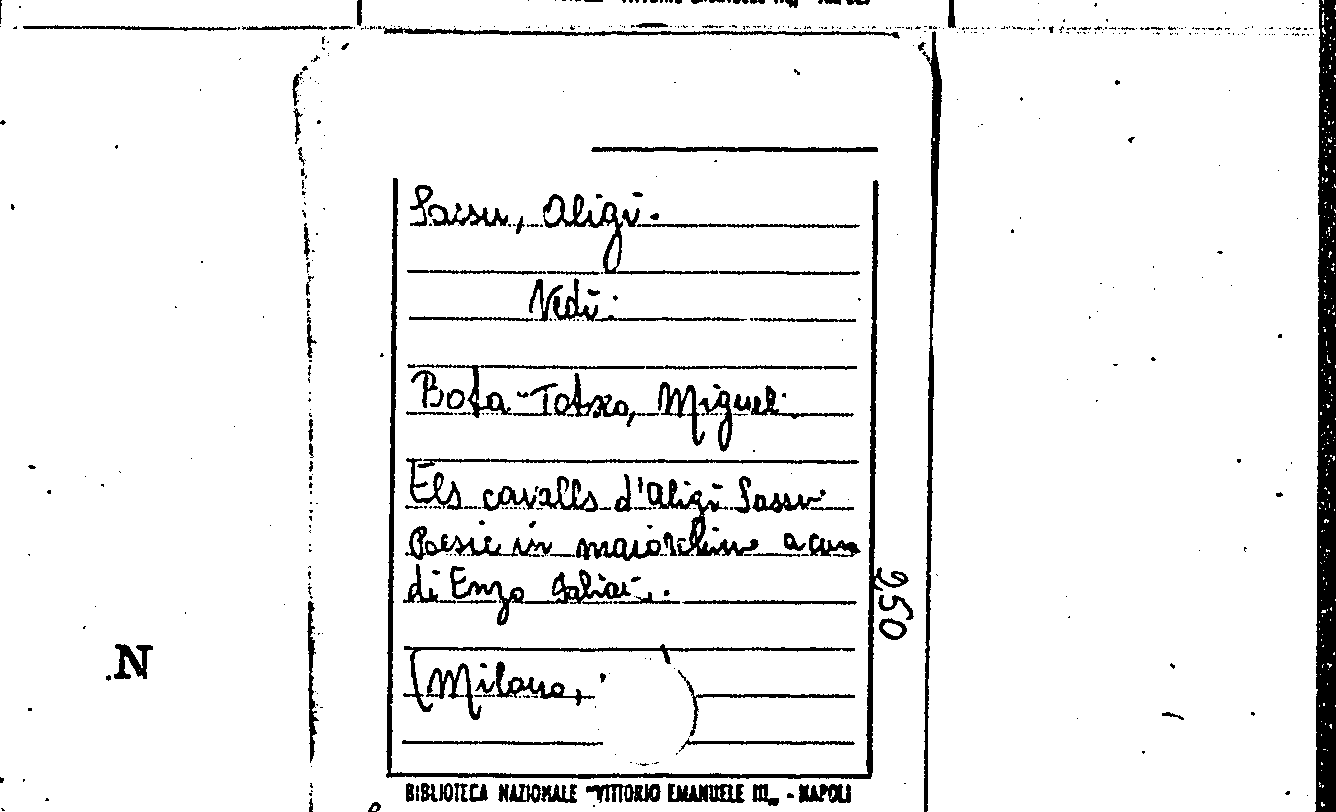 Sassu, Aligi.
Vedi:
Bota-Totxo, Miguel.
Els cavalls d'Aligi Sassu
Poesie in maiorchino a cura
di Enzo
(Milano,
2,50
N
BIBLIOTECA NAZIONALE "VITTORIO EMANUELE III„ - NAPOLI